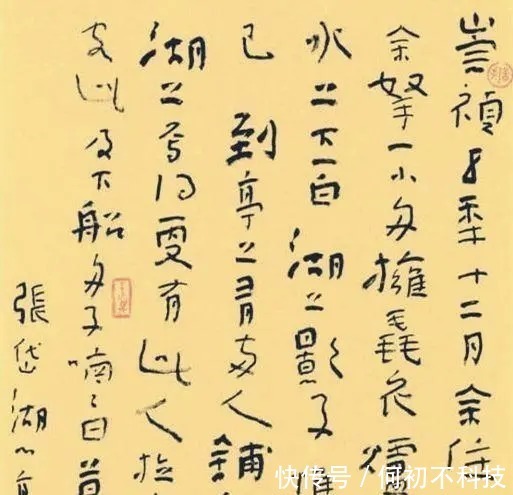 崇禎五年十二月余住
余拏一小舟擁毳衣爐
水上下一白湖上影子惟
已到亭上有兩人鋪
湖上焉得更有此人拉
客此及下船舟子喃〻曰莫
張岱湖心亭
快传号 / 何初不科技